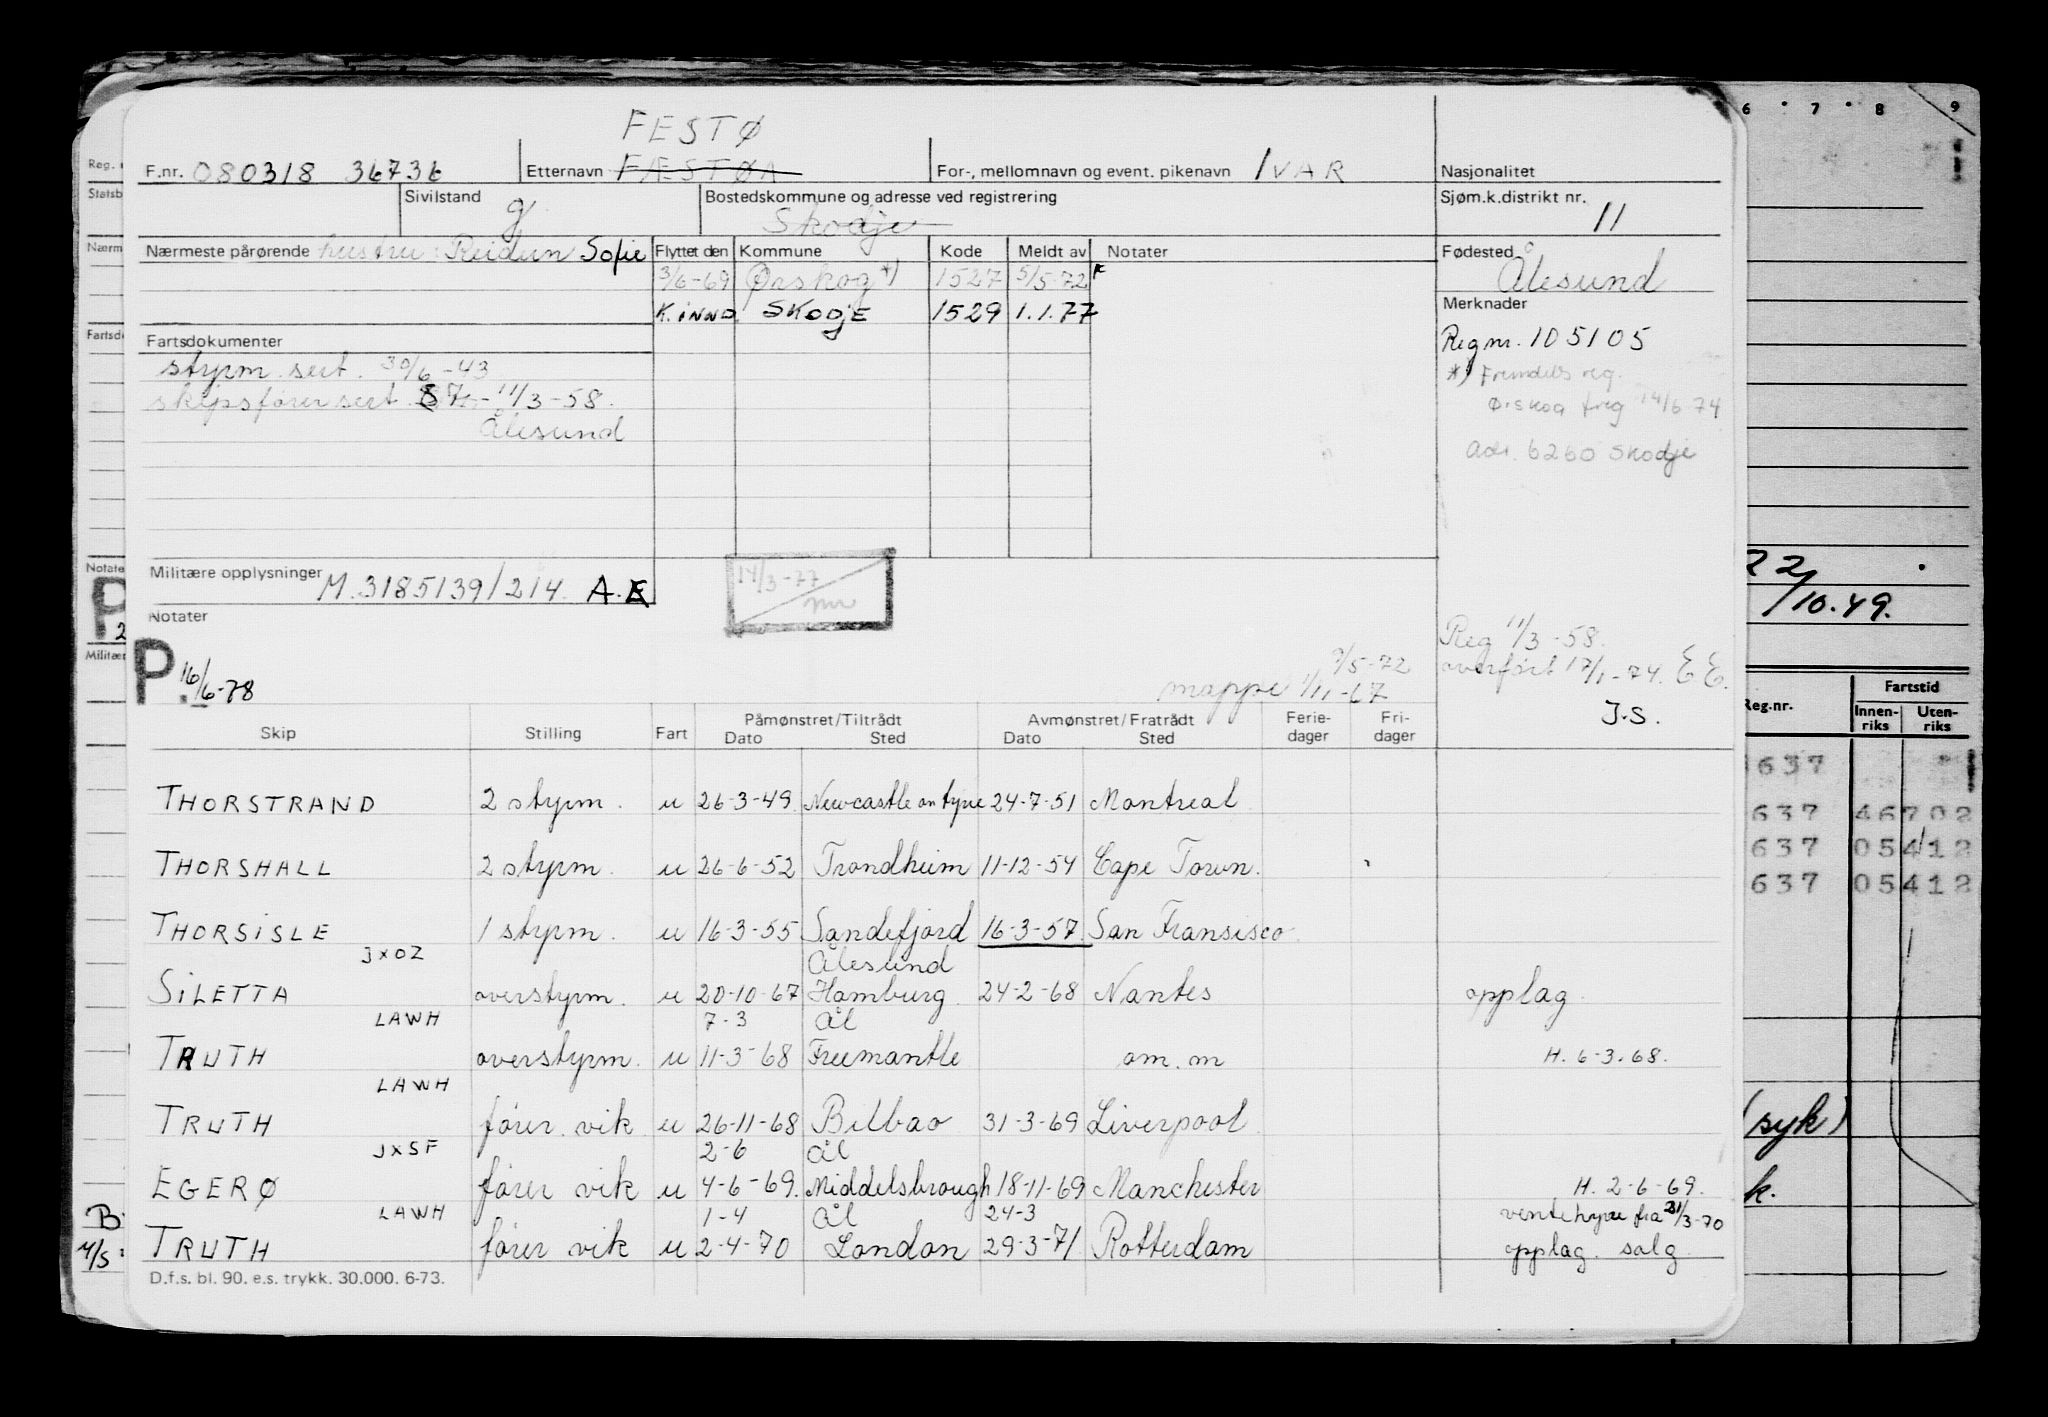 FESTØ
F.nr. 080318 36736 Etternavn FÆSTØA For-, mellomnavn og event. pikenavn IVAR Nasjonalitet
Sivilstand g Bostedskommune og adresse ved registrering Skodje Sjøm.k.distrikt nr. 11
Nærmeste pårørende hustru: Reidun Sofie Flyttet den Kommune Kode Meldt av Notater Fødested Ålesund
3/6-69 Ørskog *) 1527 5/5-72
K.innd. SKODJE 1529 1.1.77 Merknader
Fartsdokumenter Regnr. 105105
styrm. sert. 30/6-43 *) Fremdeles reg.
skipsfører sert. 11/3-58. Ørskog freg 14/6 74
Ålesund
Adr. 6260 Skodje
Militære opplysninger M.3185139/214. A.E 14/3-77
Notater
P. 16/6-78 Reg 11/3-58.
5-72 overført 17/1-74. E E.
mappe 1/11-67 J.S.
Skip Stilling Fart Påmønstret/Tiltrådt Avmønstret/Fratrådt Ferie- Fri-
Dato Sted Dato Sted dager dager
THORSTRAND 2 styrm. u 26-3-49. Newcastle on tyne 24-7-51 Montreal
THORSHALL 2 styrm. u 26-6-52 Trondheim 11-12-54 Cape Town.
THORSISLE 1 styrm. u 16-3-55 Sandefjord 16-3-57. San Fransisco.
JXOZ Ålesund
SILETTA overstyrm. u 20-10-67 Hamburg. 24-2-68 Nantes opplag.
LAWH 7-3 Ål
TRUTH overstyrm. u 11-3-68 Freemantle om.m H. 6-3.68.
LAWH
TRUTH fører vik u 26-11-68 Bilbao 31-3-69 Liverpool
JXSF 2-6 Ål
EGERØ fører vik u 4-6-69. Middelsbrough 18-11-69 Manchester H. 2-6-69.
LAWH 1-4 Ål 24-3 ventehyre fra 21/3-70
TRUTH fører vik u 2-4-70 London 29-3-71 Rotterdam opplag. salg
D.f.s. bl. 90. e.s. trykk. 30.000. 6-73.
6 7 8 9
22/10.49.
Reg.nr. Fartstid
Innen- riks Uten- riks
637
637 46702
637 05412
637 05412
(syk)
k.
Reg.
Statsb
Nærm
Fartsdo
Notate
P
2
Militær
B